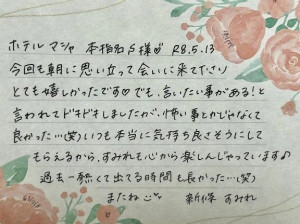 ホテル マシャ 本指名 S様♡ R8.5.13
今回も朝に思い立って会いに来て下さり
とても嬉しかったです♡でも、言いたい事がある!と
言われてドキドキしましたが、怖い事とかじゃなくて
良かった…(笑)いつも本当に気持ち良さそうにして
もらえるから、すみれも心から楽しんじゃっています♪
過去一熱くて出てる時間も長かった…(笑)
またね 新條 すみれ